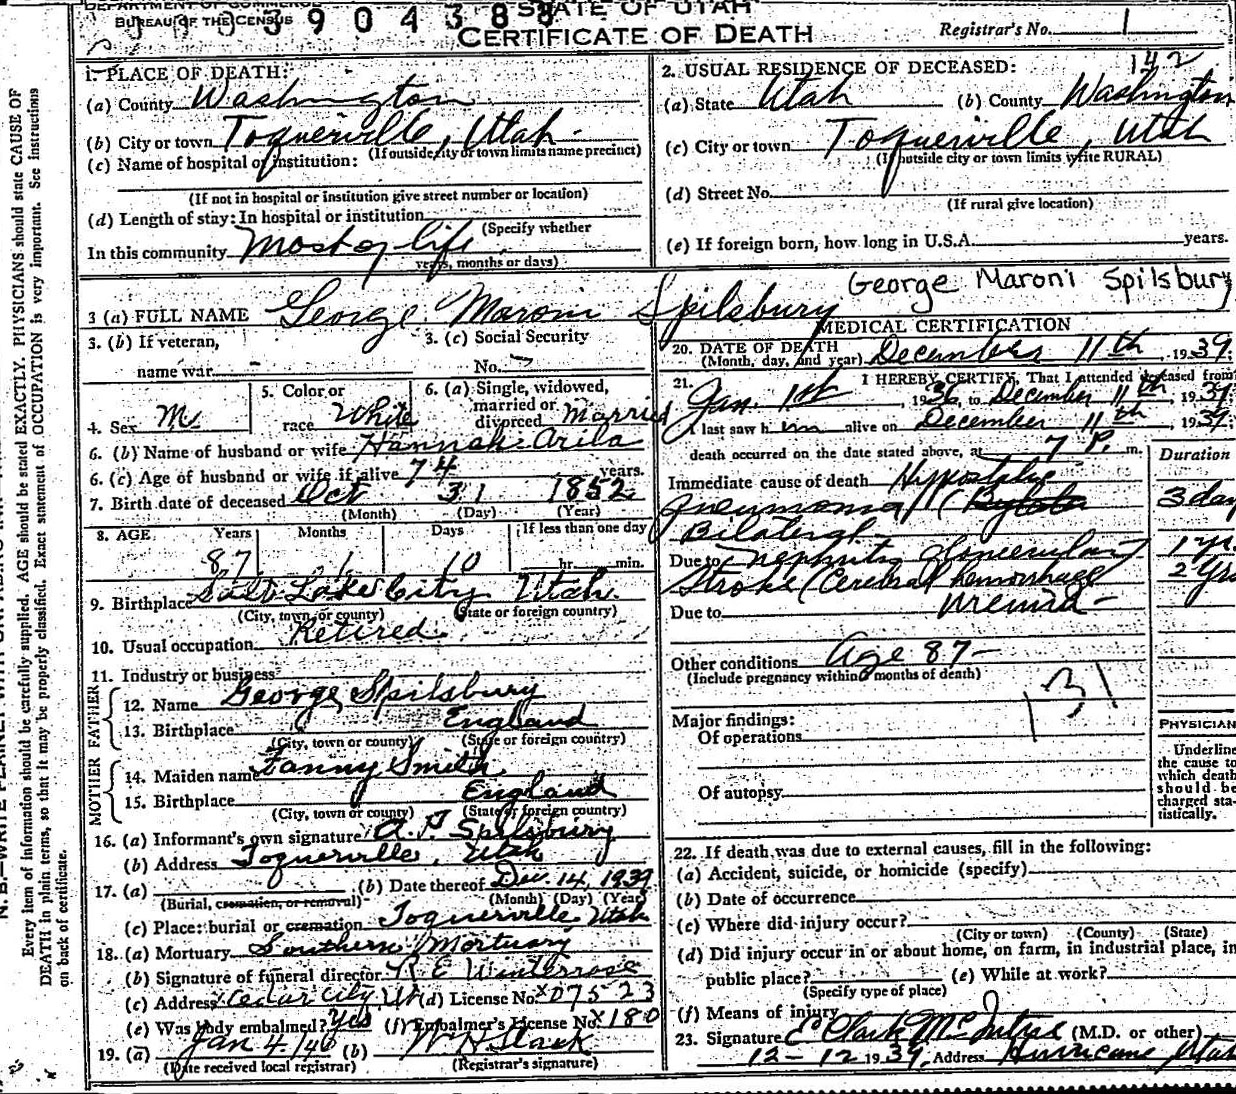 DEPARTMENT OF COMMERCE
BUREAU OF THE CENSUS
3904388
STATE OF UTAH
CERTIFICATE OF DEATH
Registrar's No. 1
142
1. PLACE OF DEATH:
(a) County Washington
(b) City or town Toquerville, Utah
(If outside city or town limits name precinct)
(c) Name of hospital or institution:
(If not in hospital or institution give street number or location)
(d) Length of stay: In hospital or institution
(Specify whether
In this community Most of life
years, months or days)
2. USUAL RESIDENCE OF DECEASED:
(a) State Utah (b) County Washington
(c) City or town Toquerville, Utah
(If outside city or town limits write RURAL)
(d) Street No.
(If rural give location)
(e) If foreign born, how long in U.S.A. years.
George Maroni Spilsbury
3 (a) FULL NAME George Maroni Spilsbury
3. (b) If veteran,
name war
3. (c) Social Security
No.
4. Sex M
5. Color or
race White
6. (a) Single, widowed,
married or
divorced Married
6. (b) Name of husband or wife Hannah Arila
6. (c) Age of husband or wife if alive 74 years.
7. Birth date of deceased Oct 31 1852
(Month) (Day) (Year)
8. AGE Years Months Days If less than one day
87 1 10 hr. min.
9. Birthplace Salt Lake City Utah
(City, town, or county) (State or foreign country)
10. Usual occupation Retired
11. Industry or business
FATHER
12. Name George Spilsbury
13. Birthplace England
(City, town or county) (State or foreign country)
MOTHER
14. Maiden name Fanny Smith
15. Birthplace England
(City, town or county) (State or foreign country)
16. (a) Informant's own signature A. P. Spilsbury
(b) Address Toquerville, Utah
17. (a) (b) Date thereof Dec. 14, 1939
(Burial, cremation, or removal) (Month) (Day) (Year)
(c) Place: burial or cremation Toquerville Utah
18. (a) Mortuary Southern Mortuary
(b) Signature of funeral director R E Winterrose
(c) Address Cedar City Ut (d) License No. x07523
(e) Was body embalmed? Yes (f) Embalmer's License No. x180
19. (a) Jan 4/40 (b) W H Slack
(Date received local registrar) (Registrar's signature)
MEDICAL CERTIFICATION
20. DATE OF DEATH
(Month, day, and year) December 11th, 1939
21. I HEREBY CERTIFY, That I attended deceased from
Jan. 1st, 1936, to December 11th, 1939
I last saw him alive on December 11th, 1939
death occurred on the date stated above, at 7 P. m.
Duration
Immediate cause of death Hypostatic
Pneumonia (
3 day
Bilateral
Due to Nephritis glomerular 1 yr.
Stroke (Cerebral hemorrhage 2 Yrs
Due to Uremia
Other conditions Age 87
(Include pregnancy within 3 months of death)
131
Major findings:
Of operations
Of autopsy
PHYSICIAN
Underline
the cause to
which death
should be
charged sta-
tistically.
22. If death was due to external causes, fill in the following:
(a) Accident, suicide, or homicide (specify)
(b) Date of occurrence
(c) Where did injury occur?
(City or town) (County) (State)
(d) Did injury occur in or about home, on farm, in industrial place, in
public place? (e) While at work?
(Specify type of place)
(f) Means of injury
23. Signature E. Clark McIntire (M.D. or other)
12-12 1939. Address Hurricane, Utah
Every item of information should be carefully supplied. AGE should be stated EXACTLY. PHYSICIANS should state CAUSE OF
DEATH in plain terms, so that it may be properly classified. Exact statement of OCCUPATION is very important. See instructions
on back of certificate.